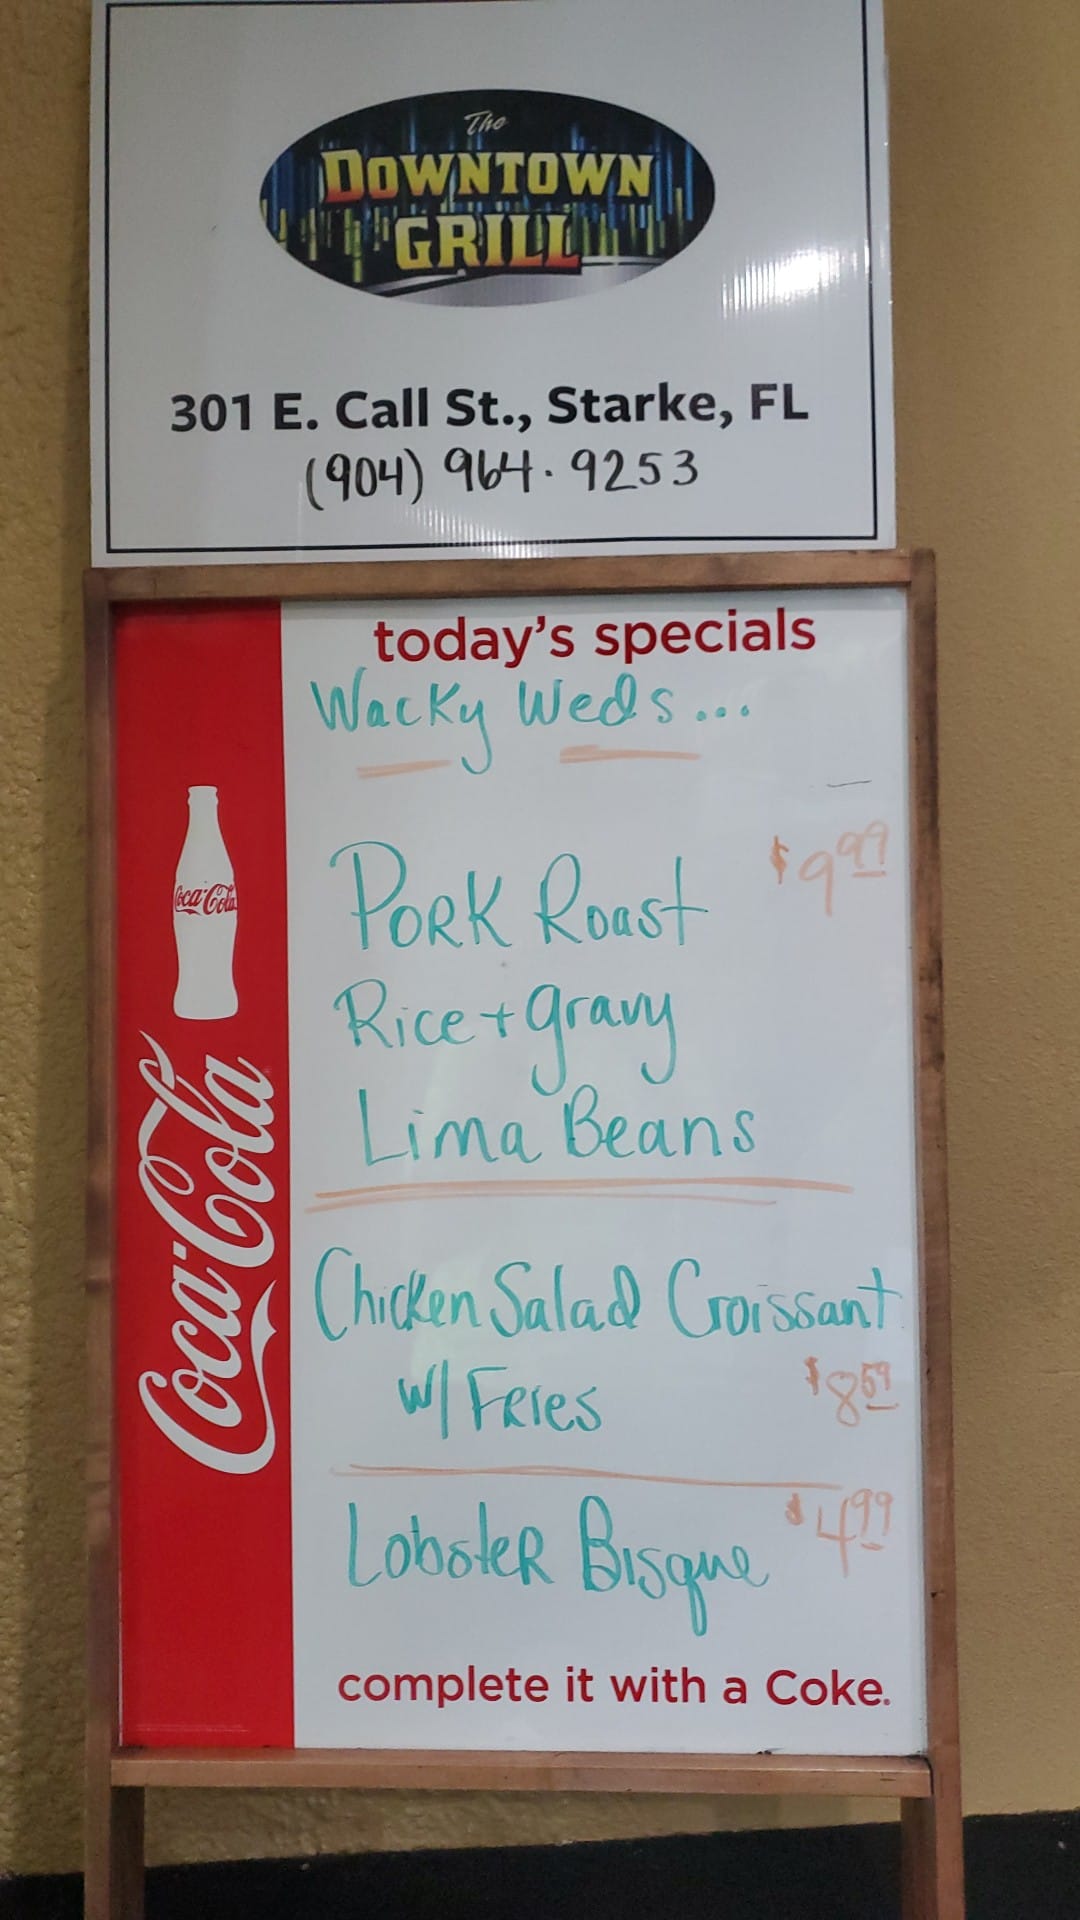 The
DOWNTOWN
GRILL
301 E. Call St., Starke, FL
(904) 964.9253
today's specials
Wacky Weds...
Pork Roast $9.99
Rice + gravy
Lima Beans
Chicken Salad Croissant
w/ Fries $8.59
Lobster Bisque $4.99
complete it with a Coke.
Coca-Cola
Coca-Cola